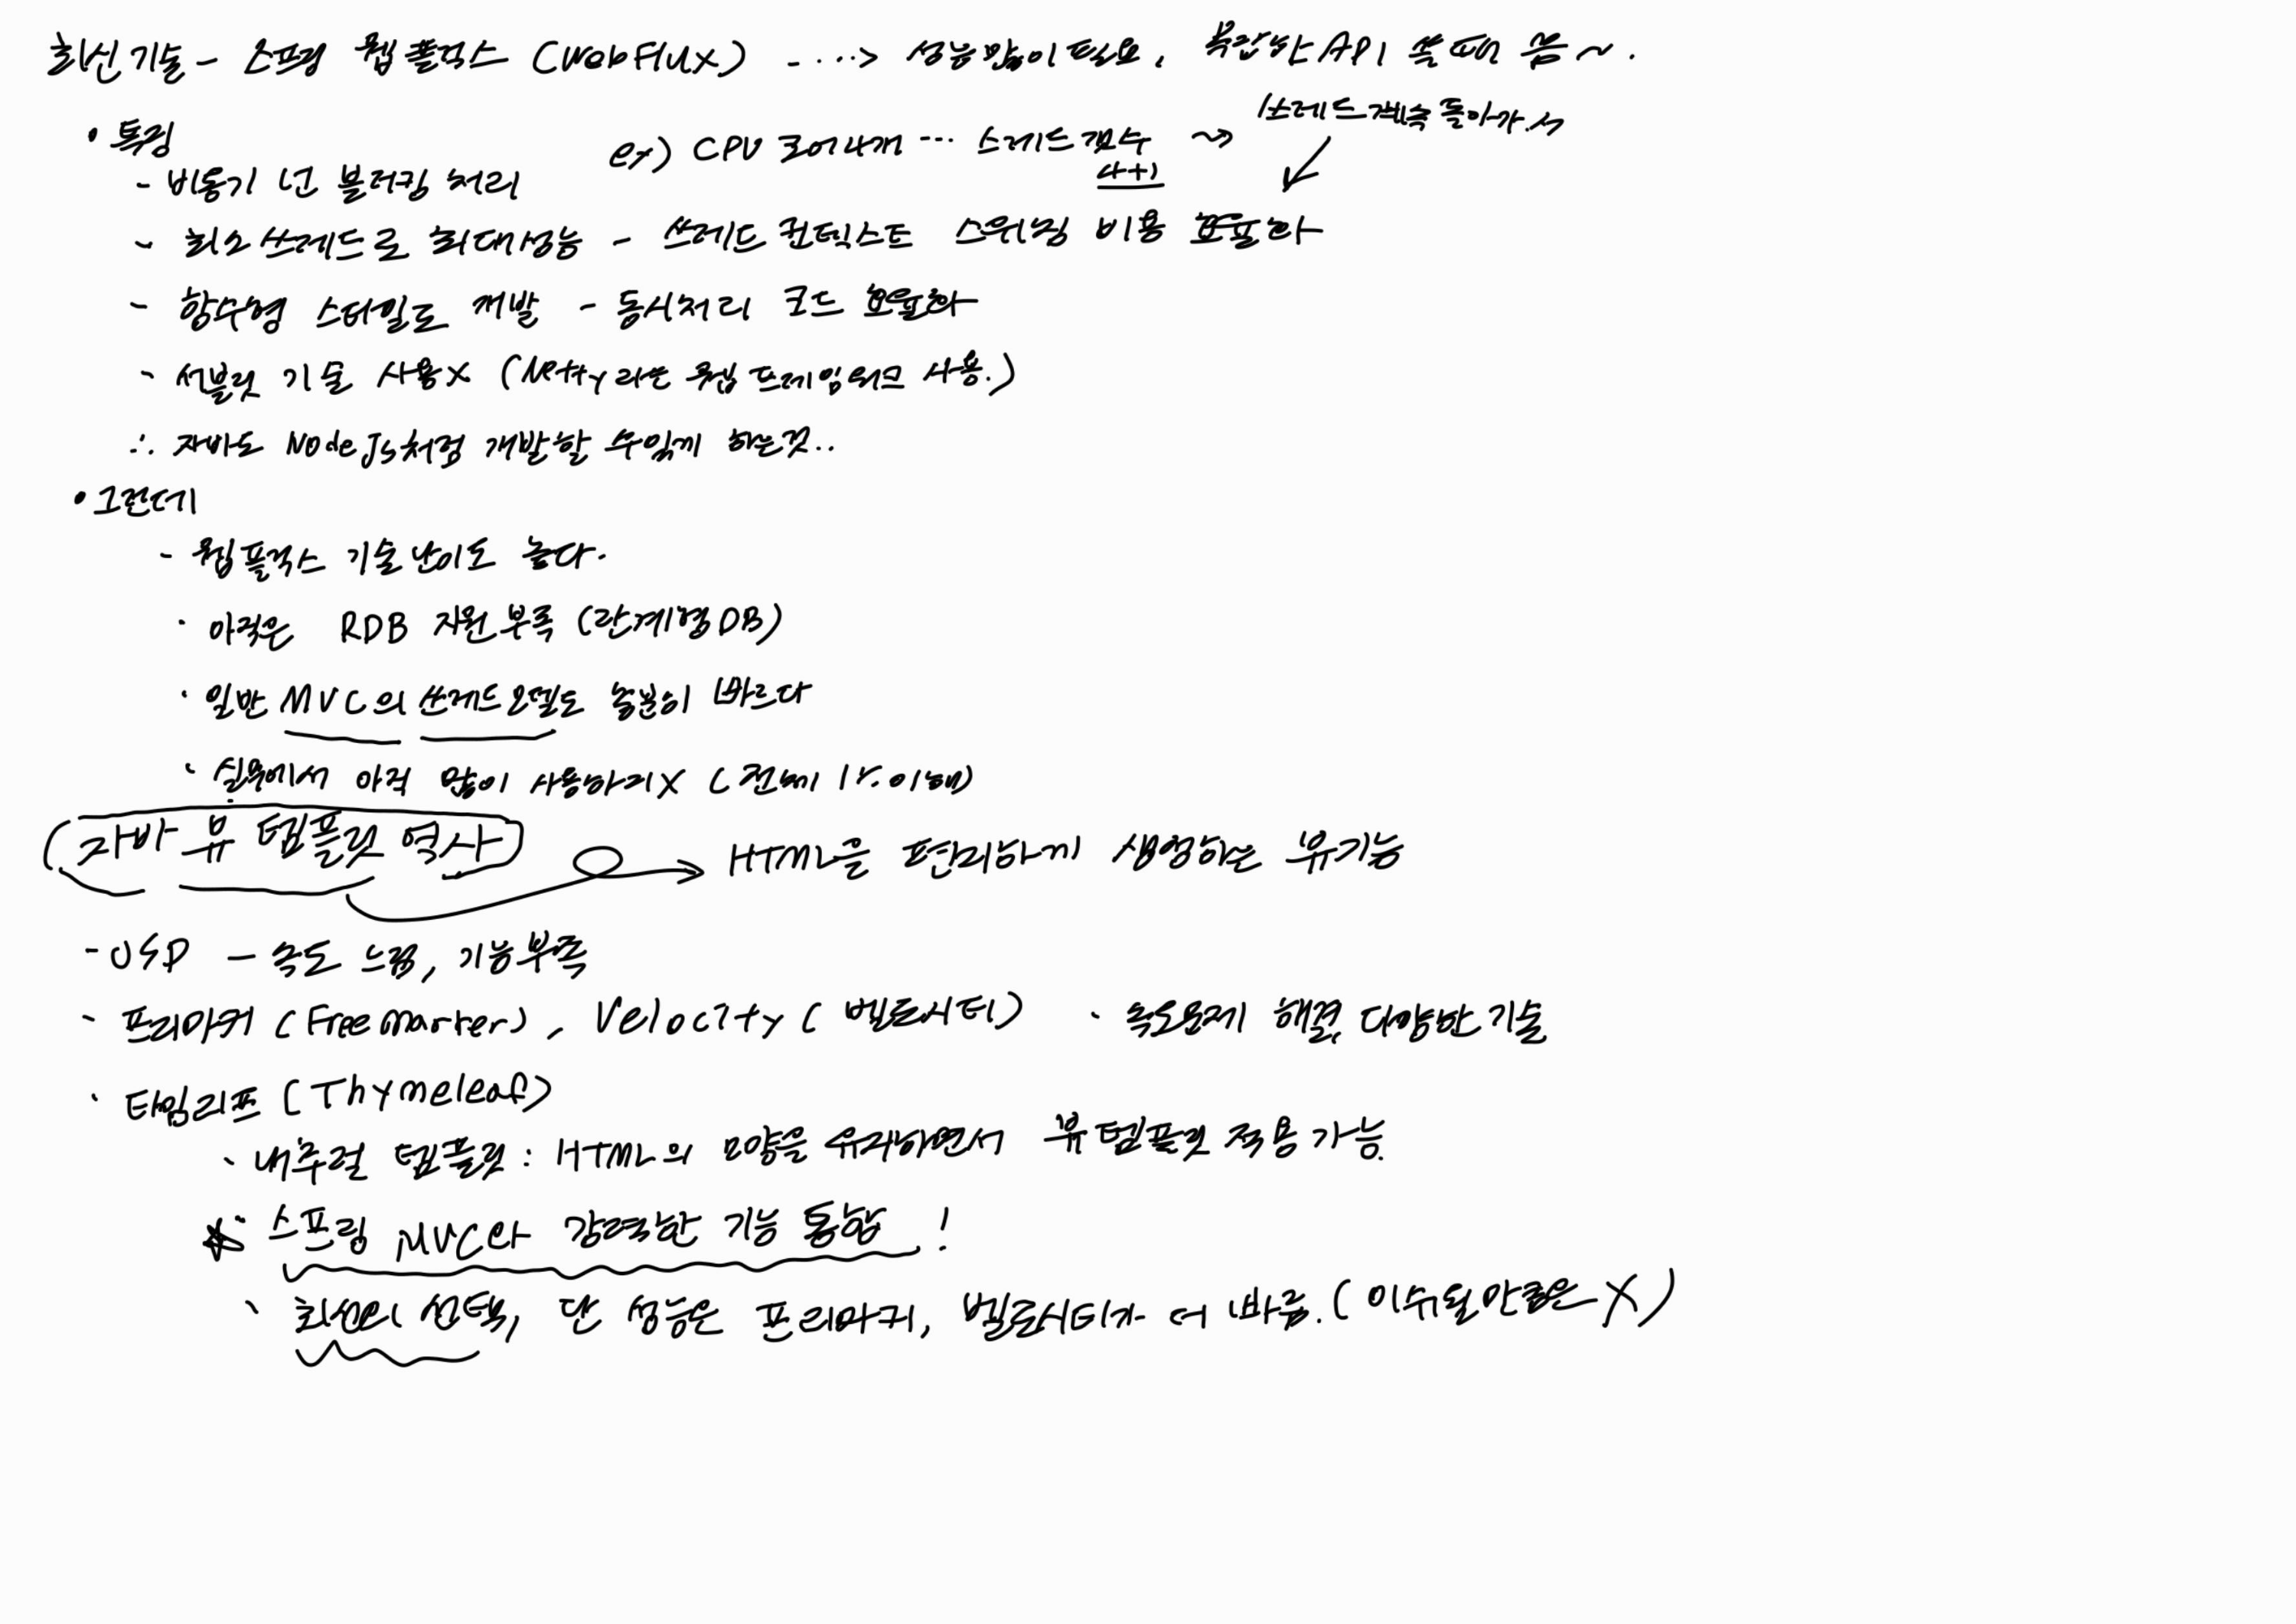 최신기술 - 스프링 웹 플럭스 (WebFlux) ----> 성능 많이 필요, 복잡한 API 쓸때 씀~.
• 특징
ex) CPU 코어 4개 … 스레드 갯수 4+1 ~> 쓰레드 계속 돌아가서
- 비동기 넌 블러킹 처리
- 최소 쓰레드로 최대성능 - 쓰레드 컨텍스트 스위칭 비용 효율화
- 함수형 스타일로 개발 - 동시처리 코드 효율화
- 서블릿 기술 사용X (Netty라는 웹 프레임워크 사용.)
∴ 자바도 NodeJs처럼 개발할 수있게 하는것..
• 그런데
- 웹 플럭스 기술 난이도 높다.
- 아직은 RDB 지원 부족 (관계형DB)
- 일반 MVC의 쓰레드 모델도 충분히 빠르다
- 실무에서 아직 많이 사용하지X (전체 1% 이하)
자바 뷰 템플릿 역사
HTML을 편리하게 생성하는 뷰기능
- JSP - 속도 느림, 기능부족
- 프리마커 (Freemarker), Velocity (벨로시티) - 속도문제 해결, 다양한 기술
- 타임리프 (Thymeleaf)
- 내추럴 템플릿 : HTML의 모양을 유지하면서 뷰 템플릿 적용 가능.
☆ 스프링 MVC와 강력한 기능 통합 !
- 최선의 선택, 단 성능은 프리마커, 벨로시티가 더 빠름. (이슈될 만큼은 X)